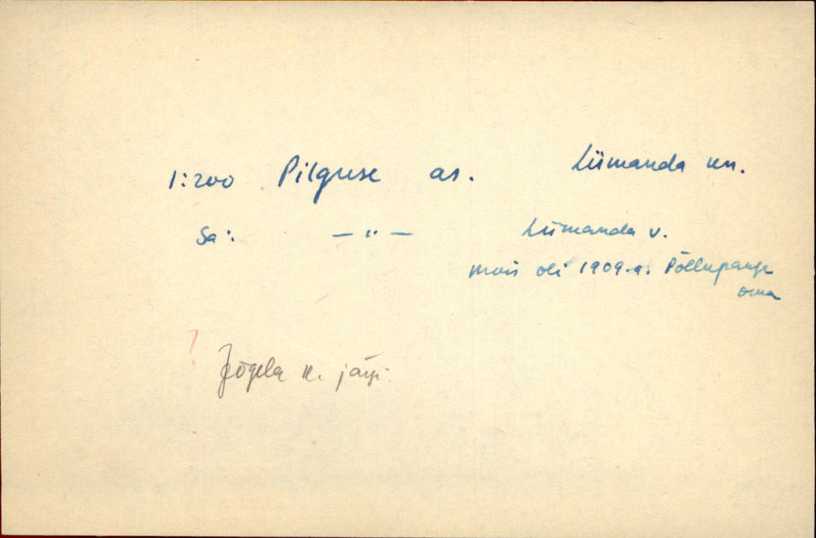 1:200 Pilguse as. Liimanda kn.
Sa: — " — Liimanda v.
mõis oli 1909.a. Põllupanga
oma
Jõgela k. järgi.